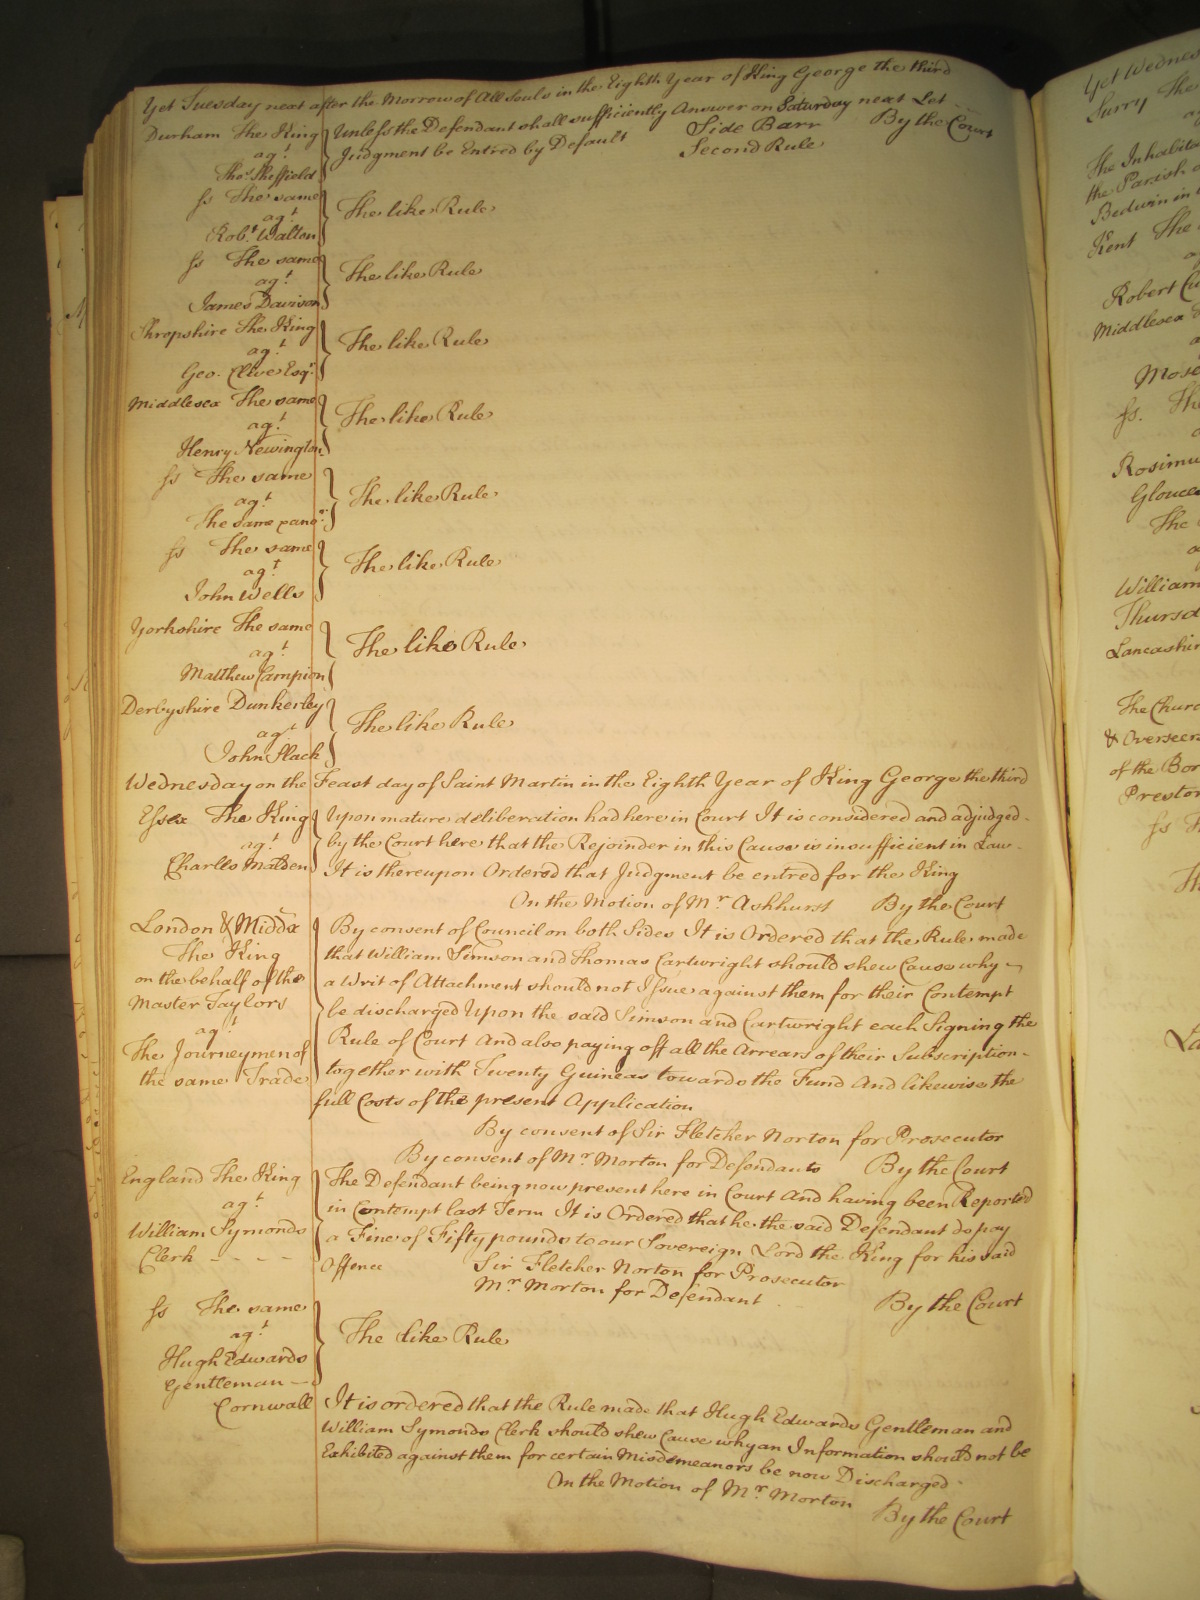 Yet Tuesday next after the Morrow of All Souls in the Eighth Year of King George the third
Durham The King
agt
Thos. Sheffield
Unless the Defendant shall sufficiently Answer on Saturday next Let
Judgment be Entred by Default Side Barr By the Court
Second Rule
Ss The same
agt
Robt. Walton
The like Rule
Ss The same
agt
James Davison
The like Rule
Shropshire The King
agt
Geo. Clive Esqr.
The like Rule
Middlesex The same
agt
Henry Newington
The like Rule
Ss The same
agt
The same
The like Rule
Ss The same
agt
John Wells
The like Rule
Yorkshire The same
agt
Matthew Campion
The like Rule
Derbyshire Dunkerley
agt
John Slack
The like Rule
Wednesday on the Feast day of Saint Martin in the Eighth Year of King George the third
Essex The King
agt
Charles Malden
Upon mature deliberation had here in Court It is considered and adjudged
by the Court here that the Rejoinder in this Cause is insufficient in Law
It is thereupon Ordered that Judgment be entred for the King
On the Motion of Mr. Ashhurst By the Court
London & Middx
The King
on the behalf of the
Master Taylors
agt
The Journeymen of
the same Trade
By consent of Council on both Sides It is Ordered that the Rule made
that William Simson and Thomas Cartwright should shew Cause why
a Writ of Attachment should not Issue against them for their Contempt
be discharged Upon the said Simson and Cartwright each Signing the
Rule of Court And also paying off all the Arrears of their Subscription
together with Twenty Guineas towards the Fund And likewise the
full Costs of the present Application
By consent of Sir Fletcher Norton for Prosecutor
By consent of Mr. Morton for Defendants By the Court
England The King
agt
William Symonds
Clerk
The Defendant being now present here in Court And having been Reported
in Contempt last Term It is Ordered that he the said Defendant do pay
a Fine of Fifty pounds to our Sovereign Lord the King for his said
Offence Sir Fletcher Norton for Prosecutor
Mr. Morton for Defendant By the Court
Ss The same
agt
Hugh Edwards
Gentleman
The like Rule
Cornwall
It is ordered that the Rule made that Hugh Edwards Gentleman and
William Symonds Clerk should shew Cause why an Information should not be
Exhibited against them for certain Misdemeanors be now Discharged
On the Motion of Mr. Morton
By the Court
Yet Wednes
Surry The
The Inhabita
the Parish o
Bedwin in
Kent The
Robert
Middlesex
Mose
Ss. The
Rosimu
Glouces
The
William
Thursd
Lancashir
The Churc
& Overseers
of the Bor
Preston
Ss
Th
La